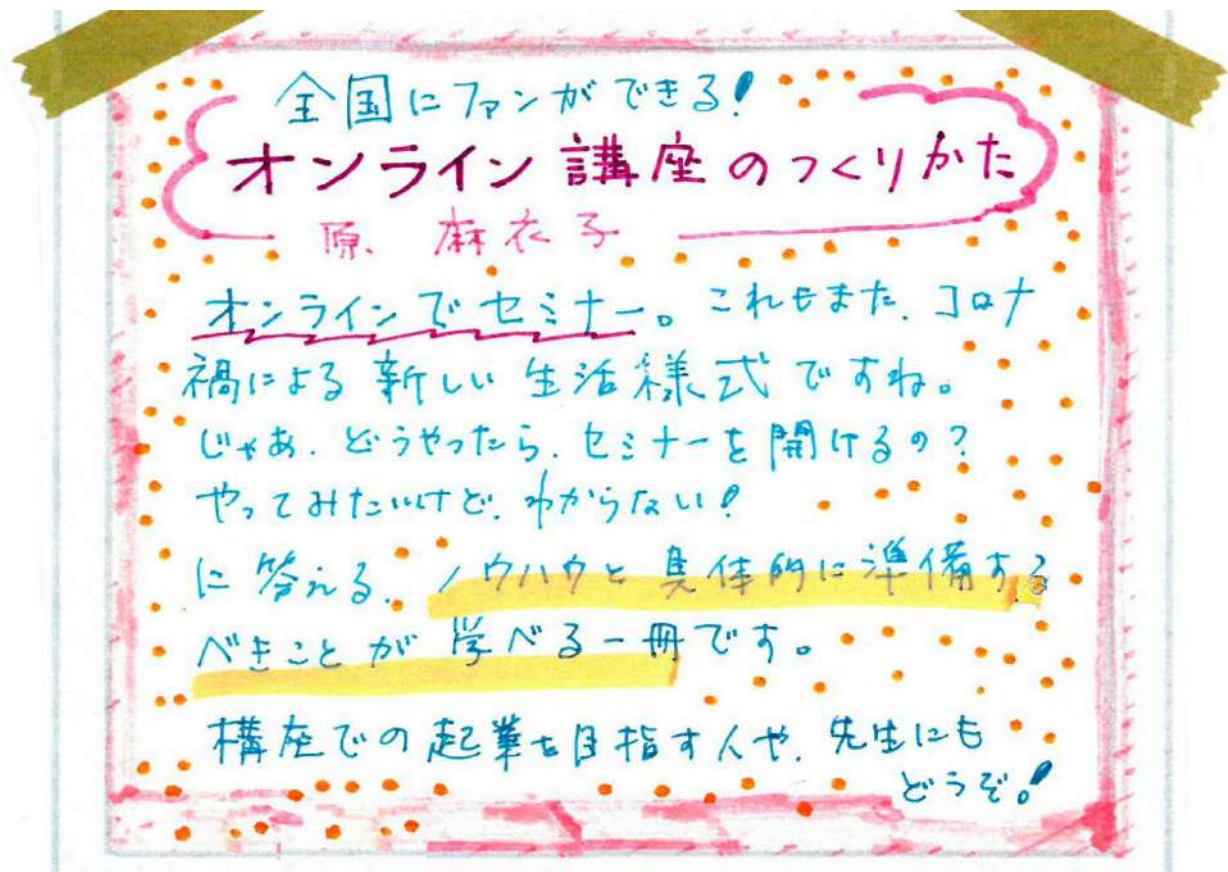 全国にファンができる!
オンライン講座のつくりかた
原 麻衣子
オンラインでセミナー。これもまた、コロナ
禍による新しい生活様式ですね。
じゃあ、どうやったら、セミナーを開けるの?
やってみたいけど、わからない!
に答える、ノウハウと具体的に準備する
べきことが学べる一冊です。
構座での起業を目指す人や、先生にも
どうぞ!